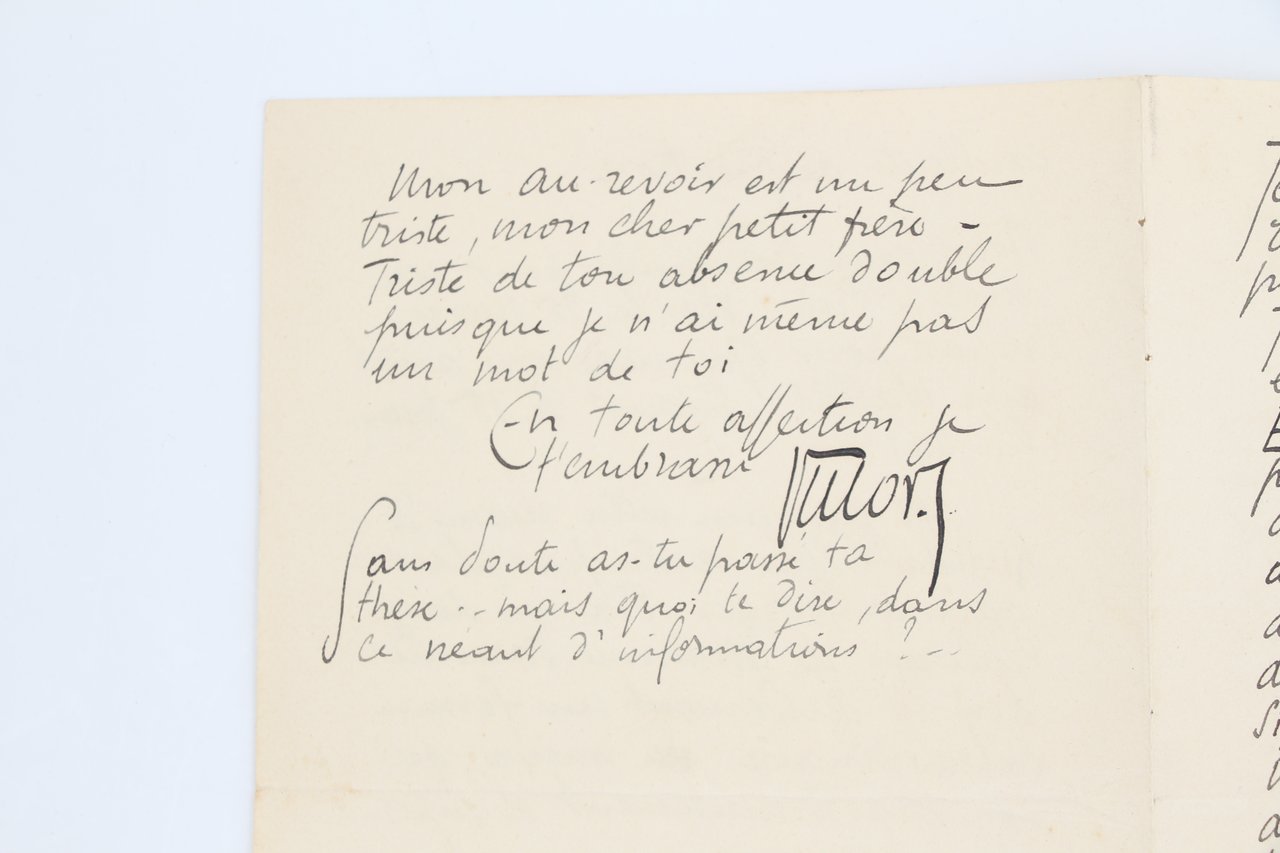 Mon au-revoir est un peu
triste, mon cher petit frère -
Triste de ton absence double
puisque je n'ai même pas
un mot de toi
En toute affection je
t'embrasse
Sans doute as-tu passé ta
thèse .. mais quoi te dire, dans
ce néant d'informations ? ..